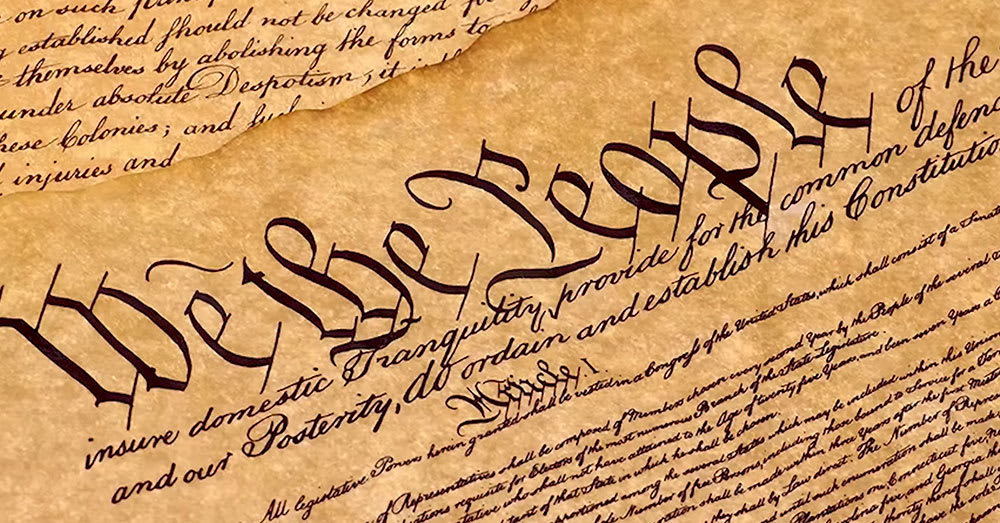 on such
established should not be changed for
themselves by abolishing the forms to
under absolute Despotism; it is
these Colonies; and
injuries and
We the People of the
insure domestic Tranquility, provide for the common defenc
and our Posterity, do ordain and establish this Constitutio
Article I.
All legislative Powers herein granted shall be vested in a Congress of the United States, which shall consist of a Senat
of Representatives shall be composed of Members chosen every second Year by the People of the several
requisite for Electors of the most numerous Branch of the State Legislature.
who shall not have attained to the Age of twenty five Years, and been seven Years a
of that State in which he shall be chosen.
among the several States which may be included within this Union
Number of free Persons, including those bound to Service for a Ter
shall be made within three Years after the first Meetin
they shall by Law direct. The Number of Represe
such enumeration shall be made
Plantations one, Connecticut five, New
and Georgia th